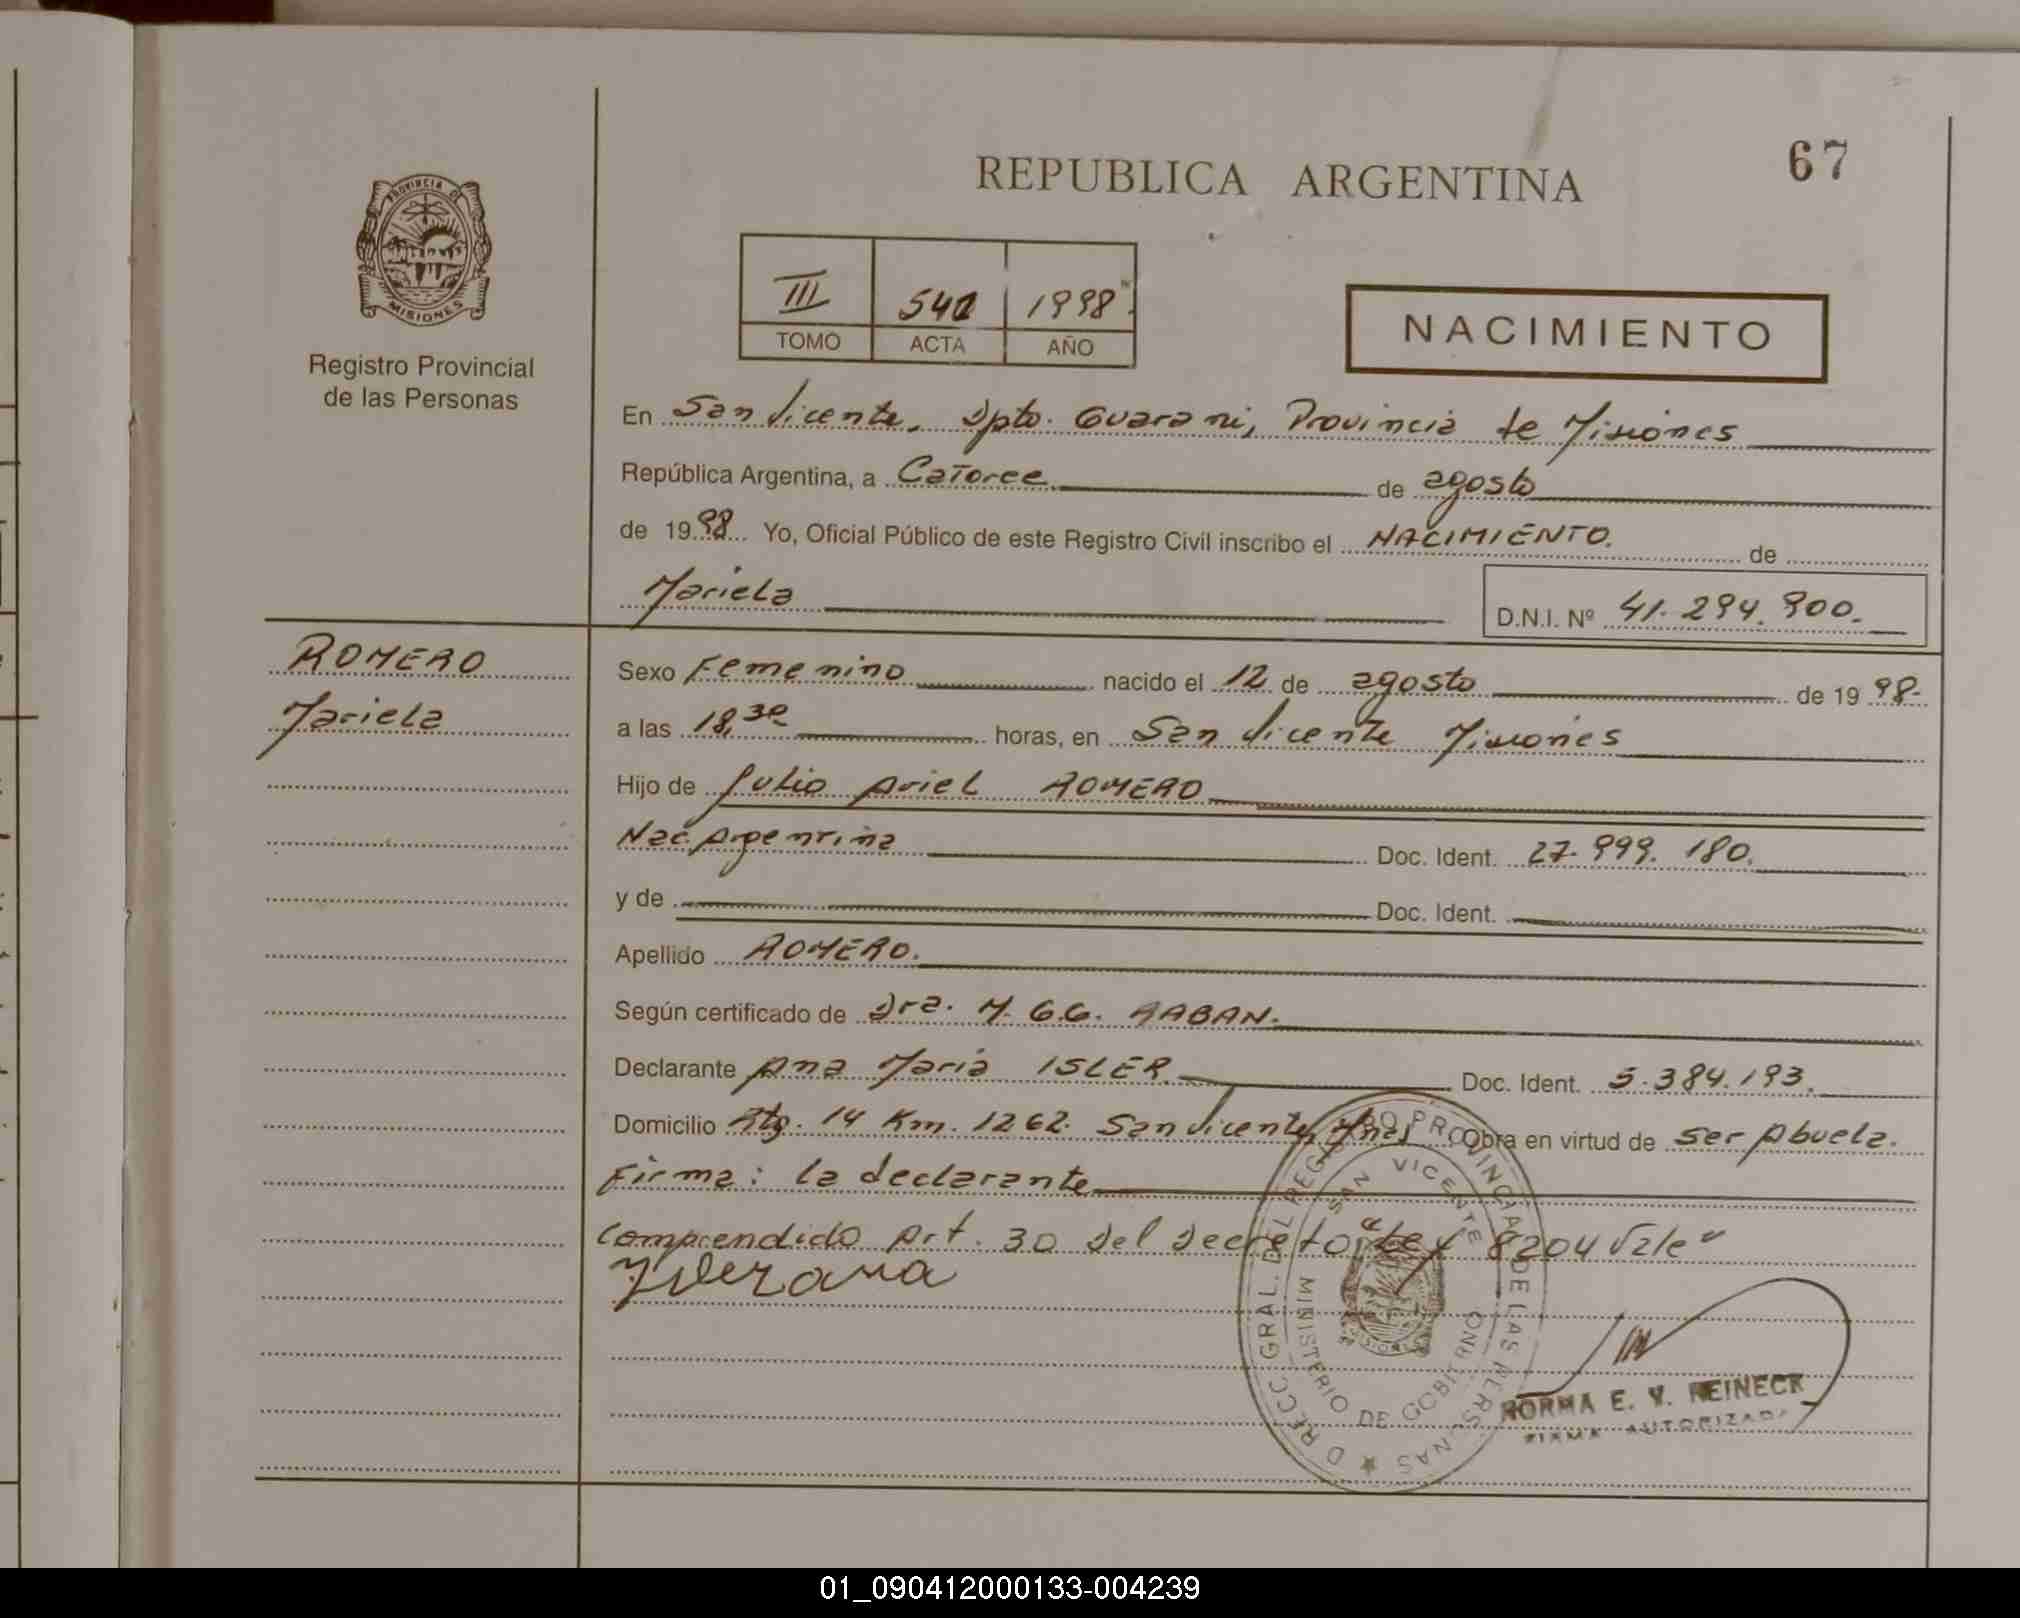 67
REPUBLICA ARGENTINA
PROVINCIA DE
MISIONES
Registro Provincial
de las Personas
III 542 1998
TOMO ACTA AÑO
NACIMIENTO
En San Vicente, Dpto. Guarani, Provincia de Misiones
República Argentina, a Catorce de agosto
de 1998 Yo, Oficial Público de este Registro Civil inscribo el NACIMIENTO. de
Mariela D.N.I. Nº 41.294.900.
ROMERO
Mariela
Sexo Femenino nacido el 12 de agosto de 1998-
a las 18,30 horas, en San Vicente Misiones
Hijo de Julio Ariel ROMERO
Nac. Argentina Doc. Ident. 27.999.180.
y de Doc. Ident.
Apellido ROMERO.
Según certificado de Dra. M. G.G. RABAN.
Declarante Ana Maria ISLER Doc. Ident. 5.384.193.
Domicilio Rta. 14 Km. 1262. San Vicente, Mnes Obra en virtud de ser Abuela.
Firma: la declarante
Comprendido Art. 30 del Decreto "Ley 8204 Vale"
DIRECC. GRAL. DEL REGISTRO PROVINCIAL DE LAS PERSONAS
SAN VICENTE
MINISTERIO DE GOBIERNO
MISIONES
NORMA E. V. REINECK
FIRMA AUTORIZADA
01_090412000133-004239